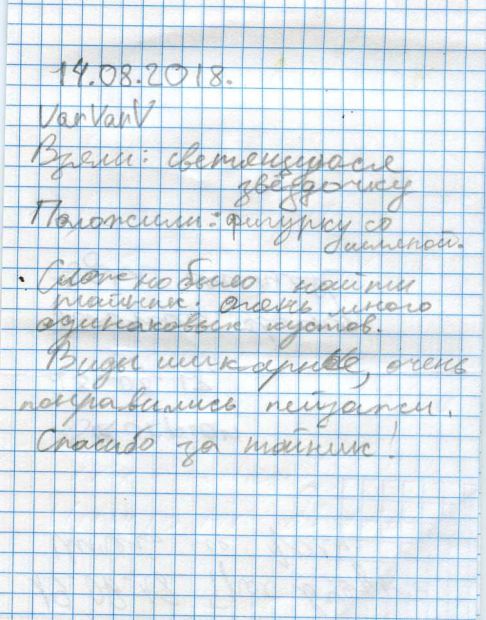 14.08.2018.
VarVarV
Взяли: светящуюся
звёздочку
Положили: фигурку со
Сложно было найти
тайник. очень много
одинаковых кустов.
Виды шикарные, очень
понравились пейзажи.
Спасибо за тайник!